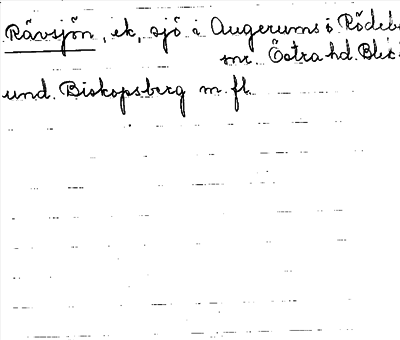 Rävsjön, ek, sjö i Augerums o Rödeb
snr. Östra hd. Blek
und. Biskopsberg m. fl.